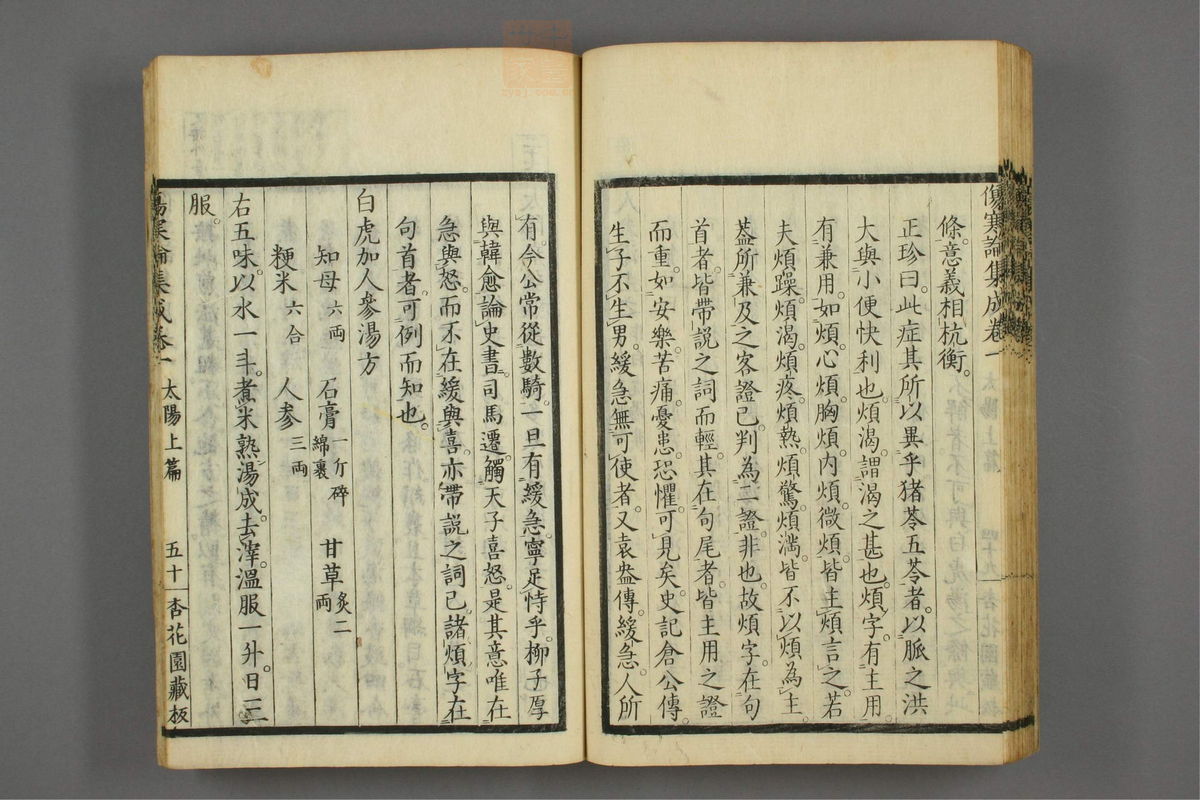 傷寒論集成卷一
條意義相抗衡。
正珍曰。此症其所以異乎猪苓五苓者。以脈之洪
大與小便快利也。煩渴。謂渴之甚也。煩字。有主用。
有兼用。如煩心煩胸煩內煩微煩。皆主煩言之。若
夫煩躁。煩渴。煩疼。煩熱。煩驚。煩滿。皆不以煩為主。
葢所兼及之客證已。判為二證。非也。故煩字在句
首者。皆帶說之詞而輕。其在句尾者。皆主用之證
而重。如安樂苦痛。憂患恐懼。可見矣。史記倉公傳。
生子不生男。緩急無可使者。又袁盎傳。緩急人所
有。今公常從數騎。一旦有緩急。寧足恃乎。柳子厚
與韓愈論史書。司馬遷。觸天子喜怒。是其意唯在
急與怒。而不在緩與喜。亦帶說之詞已。諸煩字在
句首者。可例而知也。
白虎加人參湯方
知母六兩 石膏一斤碎綿裹 甘草炙二兩
粳米六合 人參三兩
右五味。以水一斗。煮米熟湯成。去滓。溫服一升。日三
服。
傷寒論集成卷一 太陽上篇 五十 杏花園藏板